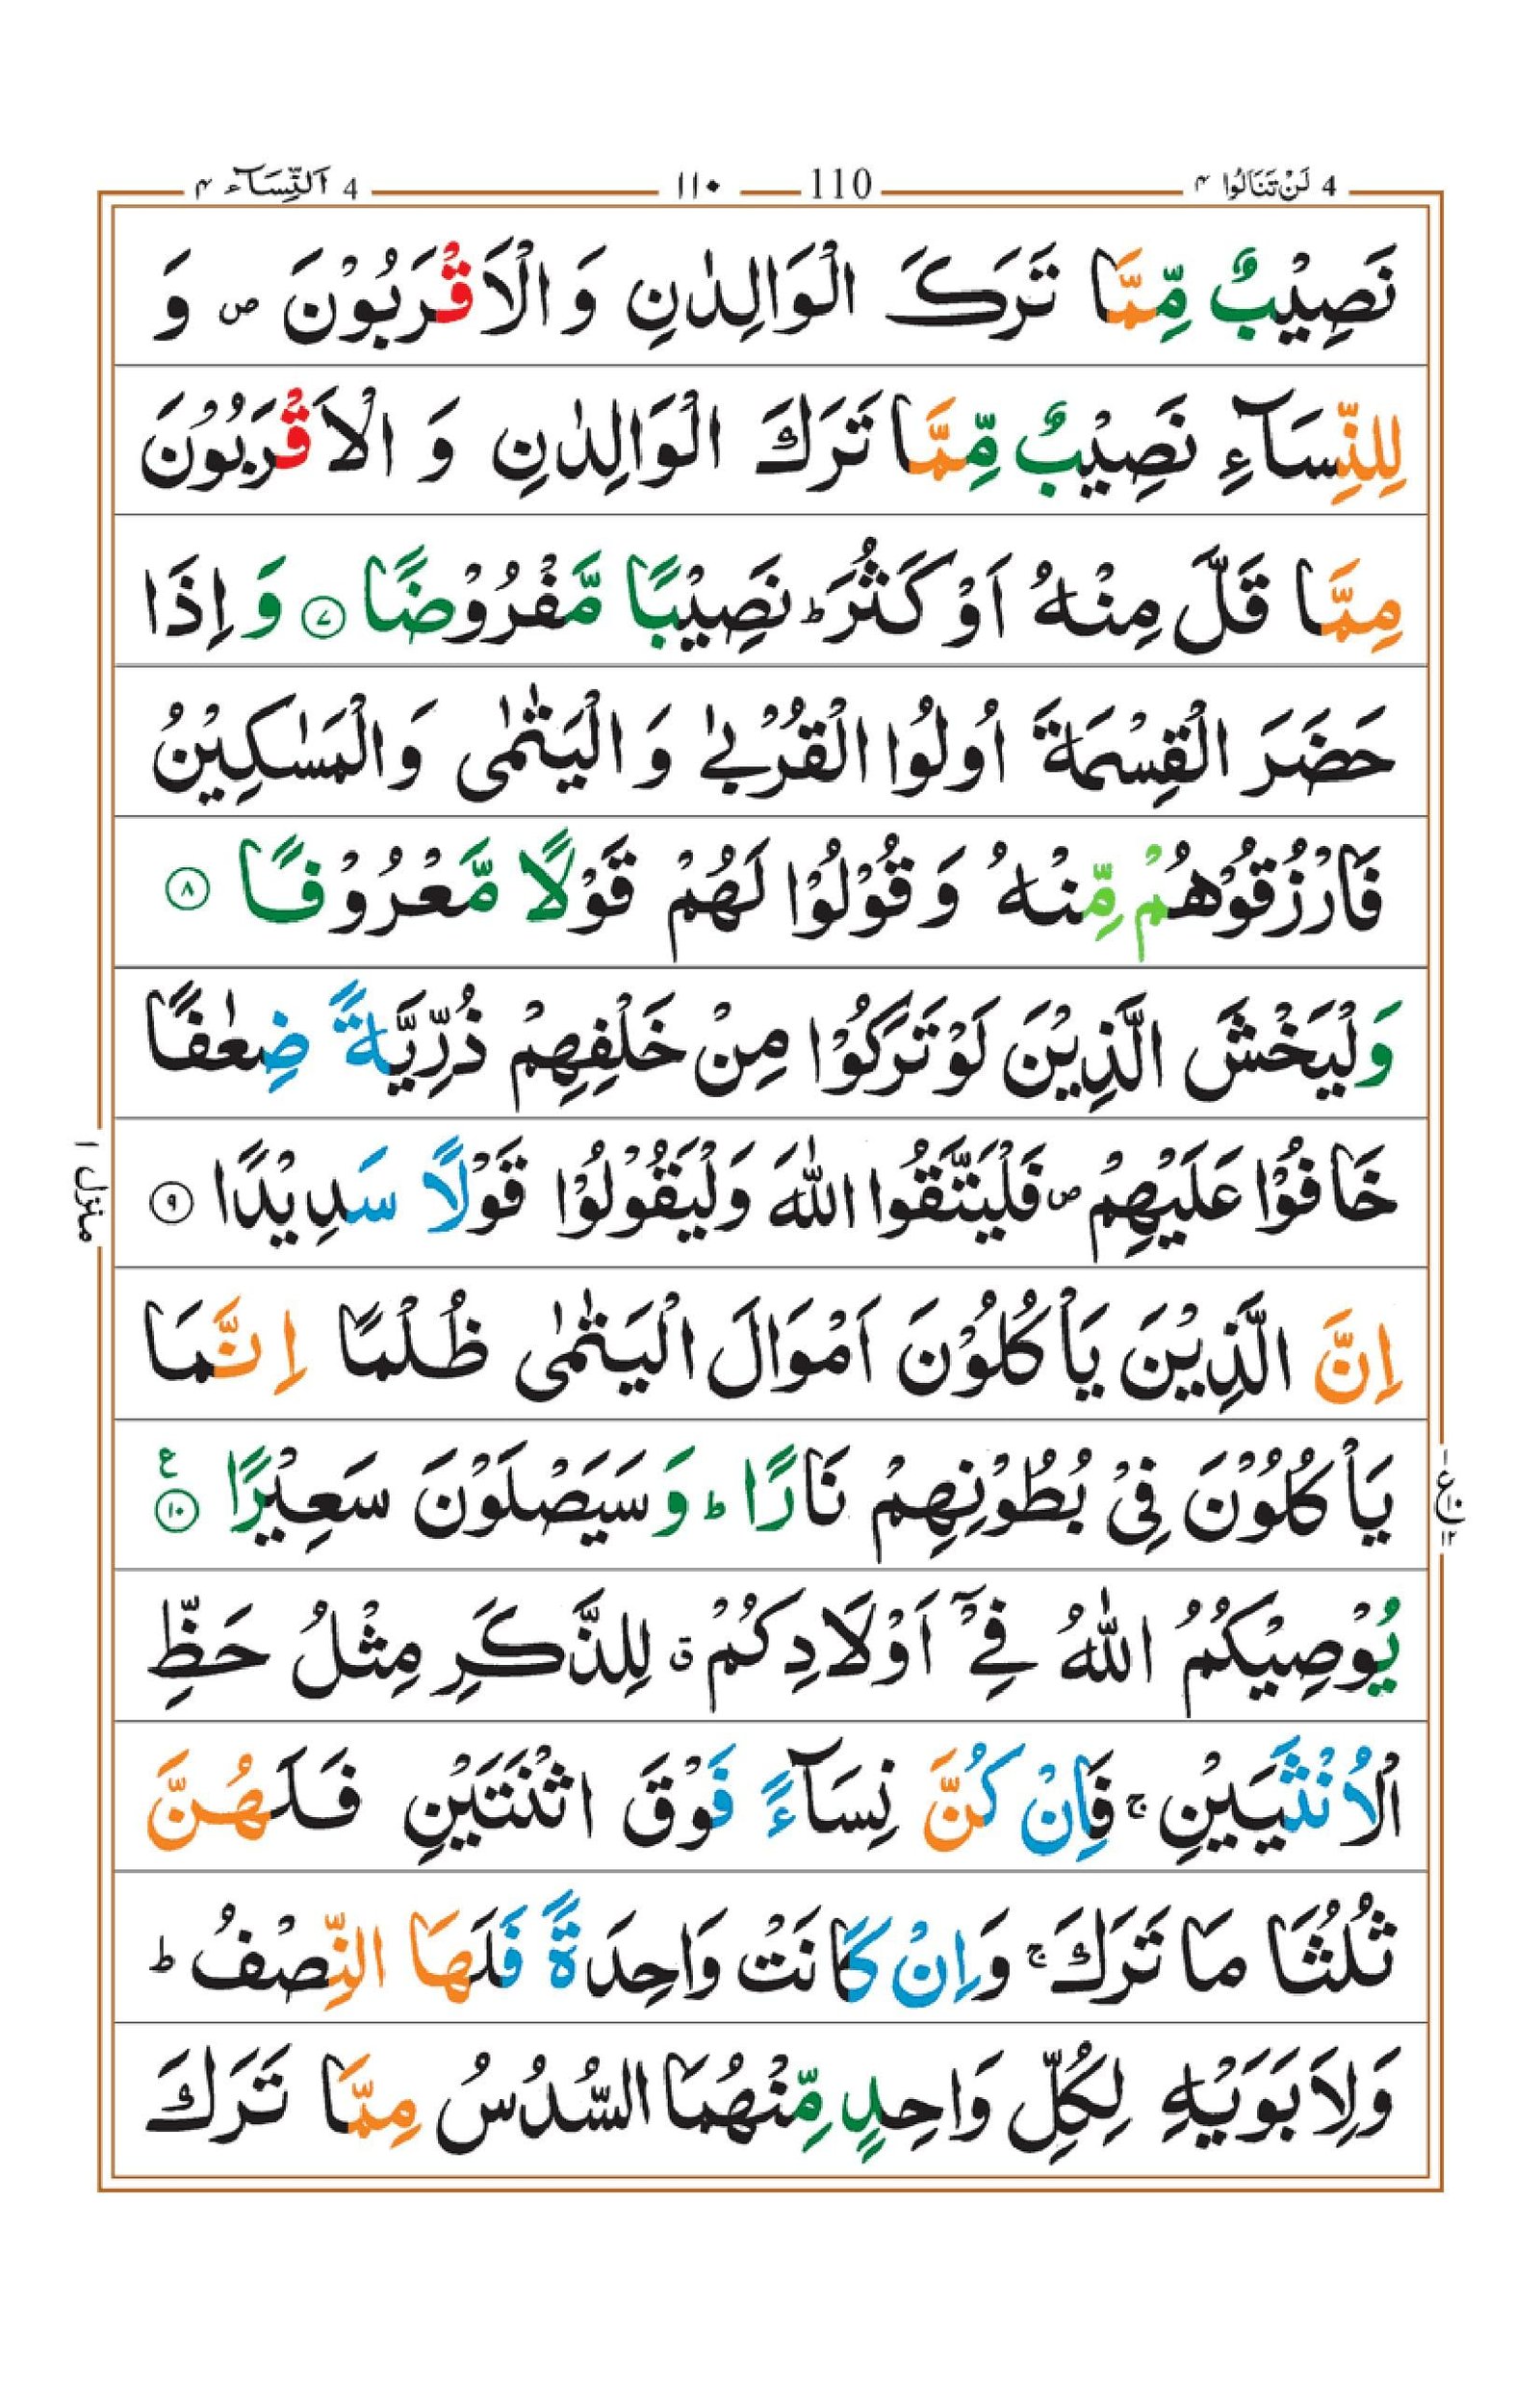 4 لَنْ تَنَالُوا ۴ 110 ١١٠ 4 اَلنِّسَآء ۴
نَصِيْبٌ مِّمَّا تَرَكَ الْوَالِدٰنِ وَ الْاَقْرَبُوْنَ ص وَ
لِلنِّسَآءِ نَصِيْبٌ مِّمَّا تَرَكَ الْوَالِدٰنِ وَ الْاَقْرَبُوْنَ
مِمَّا قَلَّ مِنْهُ اَوْ كَثُرَ ط نَصِيْبًا مَّفْرُوْضًا ۷ وَ اِذَا
حَضَرَ الْقِسْمَةَ اُولُوا الْقُرْبٰى وَ الْيَتٰمٰى وَالْمَسٰكِيْنُ
فَارْزُقُوْهُمْ مِّنْهُ وَ قُوْلُوْا لَهُمْ قَوْلًا مَّعْرُوْفًا ۸
وَلْيَخْشَ الَّذِيْنَ لَوْ تَرَكُوْا مِنْ خَلْفِهِمْ ذُرِّيَّةً ضِعٰفًا
خَافُوْا عَلَيْهِمْ ص فَلْيَتَّقُوا اللّٰهَ وَلْيَقُوْلُوْا قَوْلًا سَدِيْدًا ۹
اِنَّ الَّذِيْنَ يَاْكُلُوْنَ اَمْوَالَ الْيَتٰمٰى ظُلْمًا اِنَّمَا
يَاْكُلُوْنَ فِيْ بُطُوْنِهِمْ نَارًا ط وَ سَيَصْلَوْنَ سَعِيْرًا ۱۰ ع
يُوْصِيْكُمُ اللّٰهُ فِيْٓ اَوْلَادِكُمْ ق لِلذَّكَرِ مِثْلُ حَظِّ
الْاُنْثَيَيْنِ ج فَاِنْ كُنَّ نِسَآءً فَوْقَ اثْنَتَيْنِ فَلَهُنَّ
ثُلُثَا مَا تَرَكَ ج وَاِنْ كَانَتْ وَاحِدَةً فَلَهَا النِّصْفُ ط
وَلِاَبَوَيْهِ لِكُلِّ وَاحِدٍ مِّنْهُمَا السُّدُسُ مِمَّا تَرَكَ
منزل ۱
ع ۱ ۱۰ ۱۲